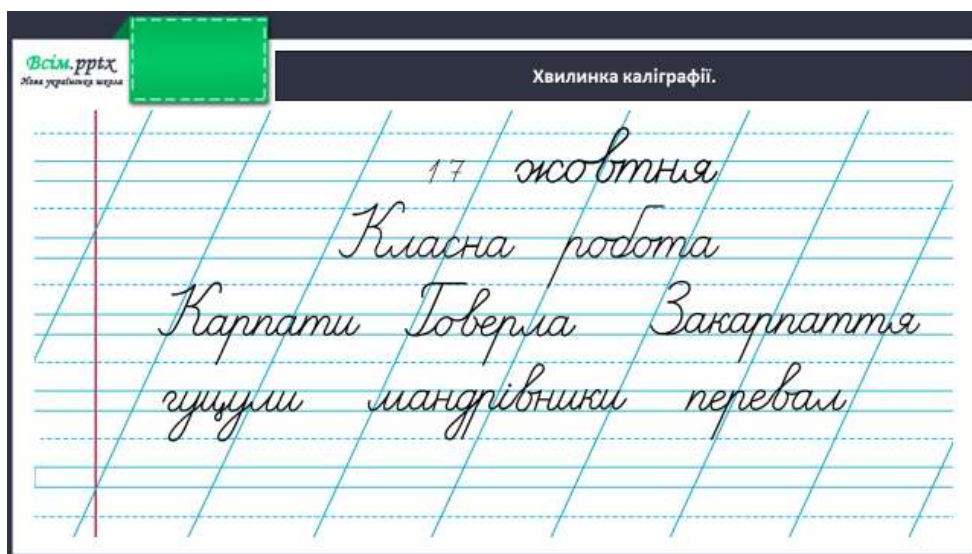 Всім.pptx
Нова українська школа
Хвилинка каліграфії.
17 жовтня
Класна робота
Карпати Говерла Закарпаття
гуцули мандрівники перевал